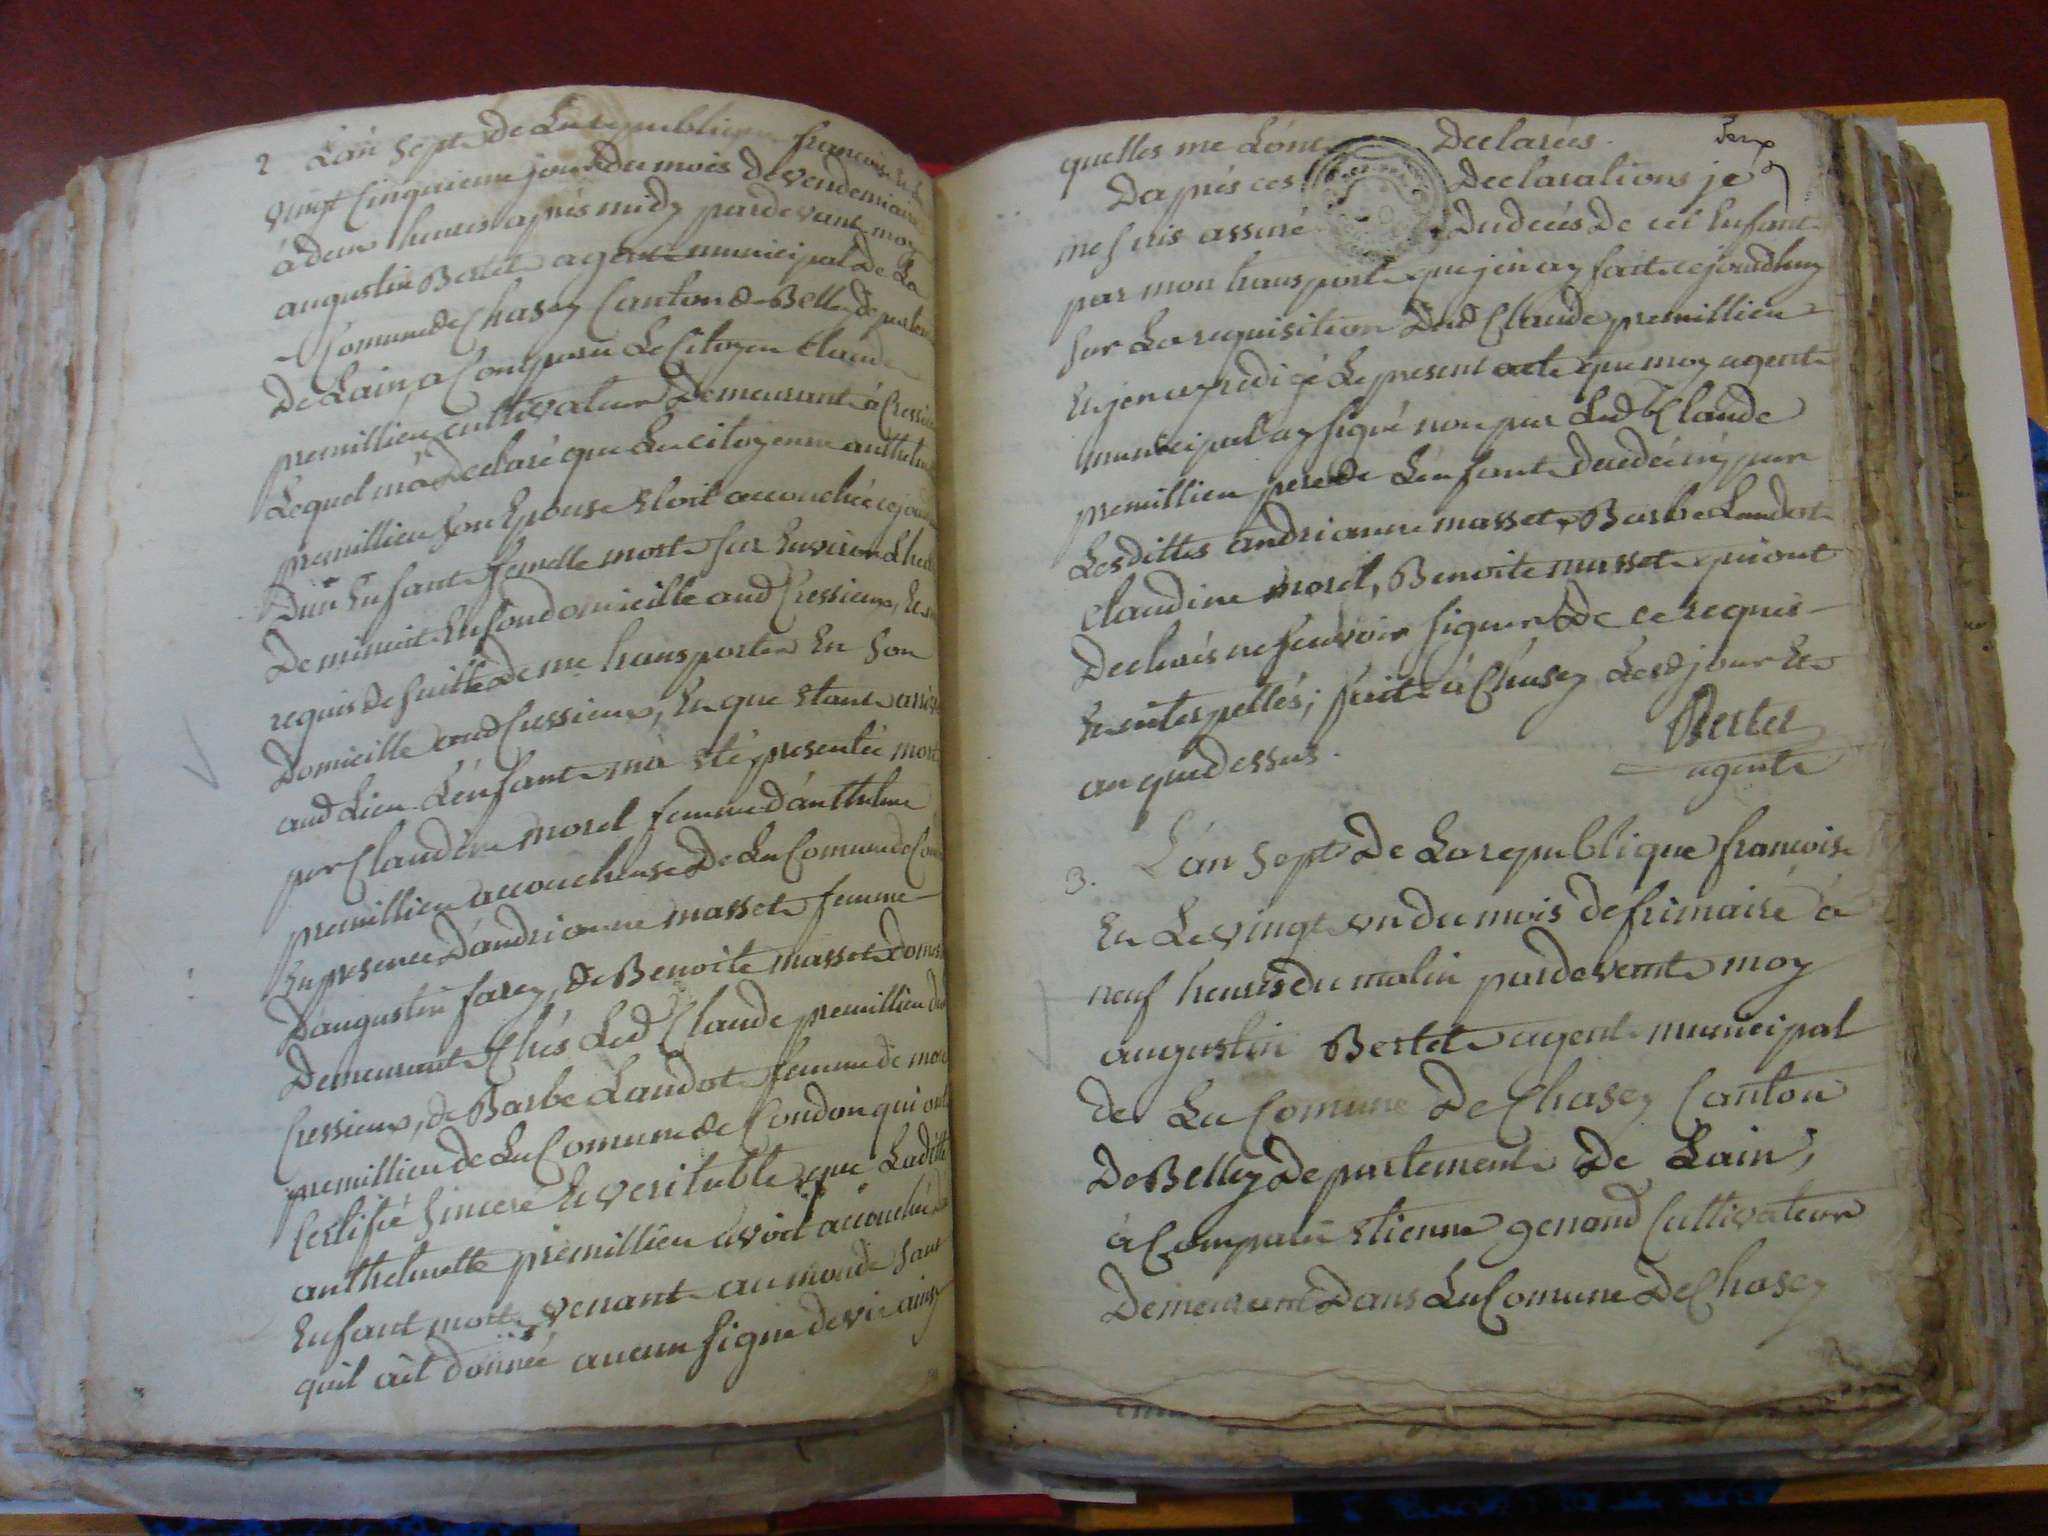 2 L'an Sept de La republique francoise Et le
vingt Cinquieme jour du mois de vendemiaire
à deux heures apres midy pardevant moy
augustin Bertet agent municipal De La
Comune de Chasey Canton de Belley departement
De Lain a Comparu Le Citoyen Claude
premillieu cultivateur Demeurant à Cressieux
Lequel m'à Declaré que La citoyenne anthelmette
premillieu Son Epouse Etoit accouchée cejourd'huy
Dun Enfant femelle mort sur Environ L'heure
De minuit En son domicille aud Cressieux, Et m'a
requis de suitte de me transporter En Son
Domicille aud Cressieux, En que Etant arrivé
aud Lieu L'enfant m'à Eté presentée mort
par Claudine morel femme d'anthelme
premillieu accoucheuse De La Comune de Condon
En presence D'andrianne masset femme
D'augustin farey, de Benoite masset domestique
Demeurant Chés Led Claude premillieu dud
Cressieux, de Barbe Landot femme de
premillieu de La Comune de Condon qui ont
Certifié Sincere Et veritable que Ladille
anthelmette premillieu avoit accouché d'un
Enfant mort venant au monde sans
quil ait donnée aucun signe de vie ainsy
quelles me L'ont Declarées. Deux
Dapres ces Declarations je
me suis assuré Du decés De cet Enfant
par mon transport que jen ay fait cejourdhuy
sur La requisition Dud Claude premillieu
Et jen ay redigé Le present acte que moy agent
municipal ay signé non par Led Claude
premillieu pere de L'enfant decedé ny par
Lesdittes andrianne masset, Barbe Landot
Claudine morel, Benoite masset qui ont
Declarés ne sçavoir signer de ce requis
Et interpellés; fait à Chasey Lesd jour Et
an que dessus. Bertet
agent
3. L'an Sept De La republique francoise
Et Le vingt un du mois de frimaire à
neuf heures du matin pardevant moy
augustin Bertet agent municipal
de La Comune De Chasey Canton
De Belley Departement De Lain,
à Comparu Etienne genand Cultivateur
Demeurant Dans La Comune De Chasey